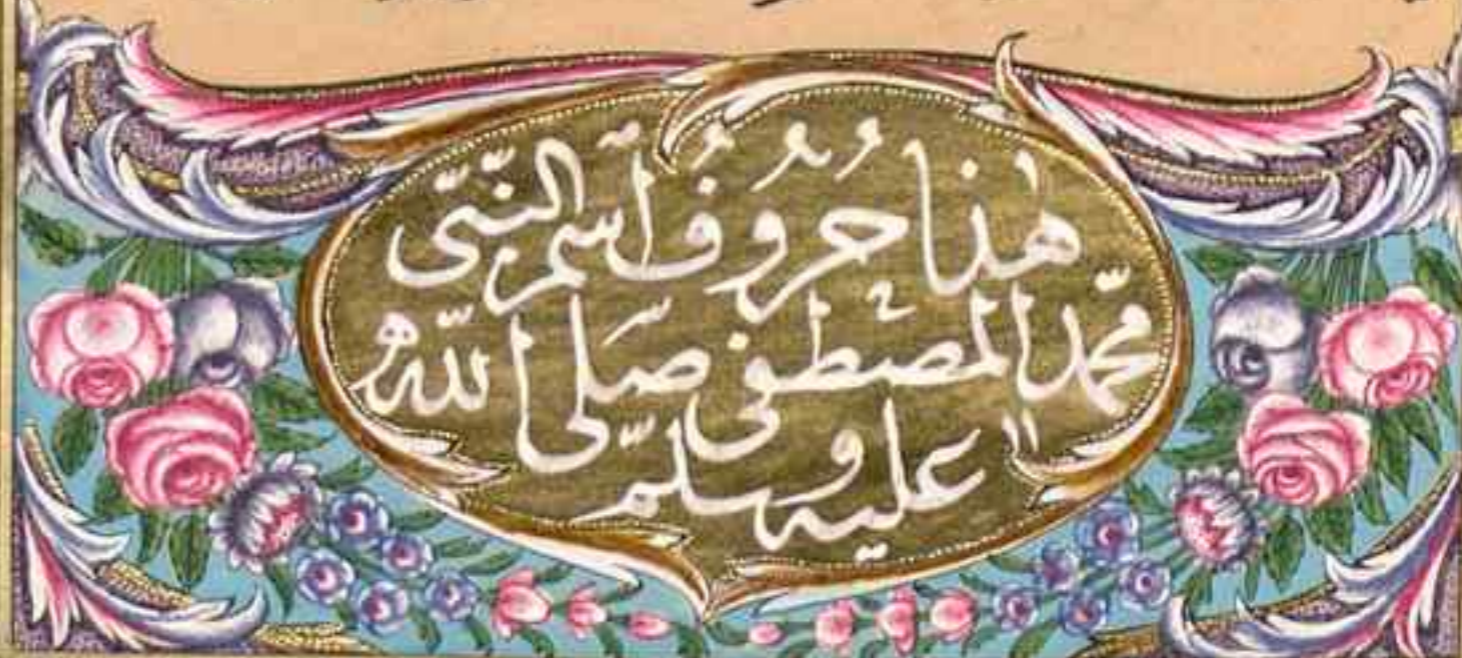 هٰذا حُرُوفُ آسم النبّى
محمّد المصطفى صلّى اللّه
عليه وسلّم